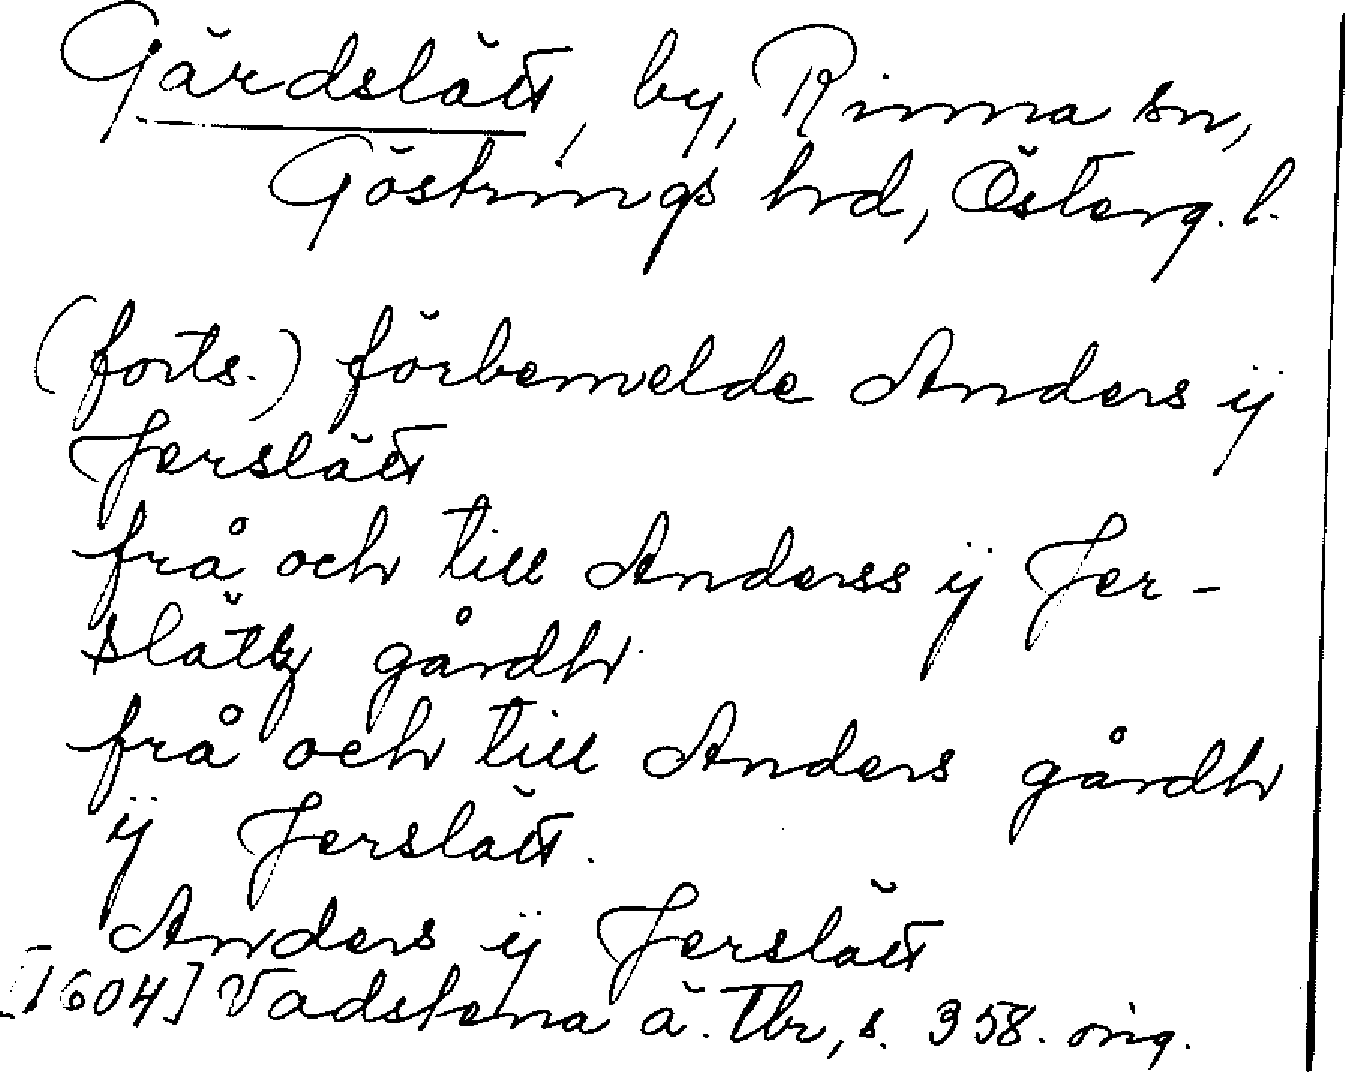 Gärdslätt, by, Rinna sn,
Göstrings hrd, Österg. l.
(forts.) förbemelde Anders ÿ
Jerslätt
frå och till Anderss ÿ Jer-
slättz gårdh
frå och till Anders gårdh
ÿ Jerslätt.
Anders ÿ Jerslätt
[1604] Vadstena ä. Tbr, s. 358. orig.